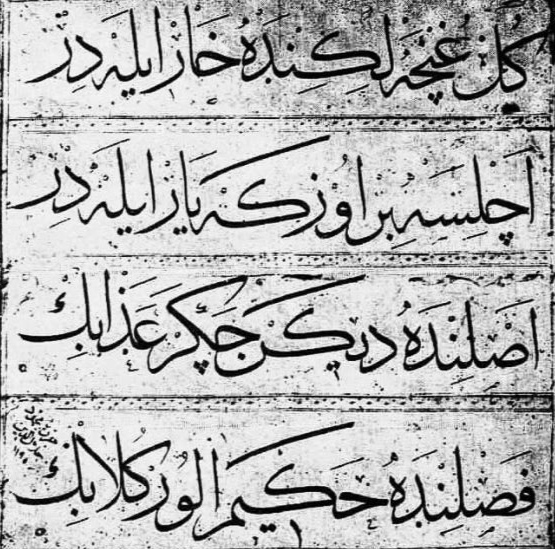 كل غنچه لكنده خار ايله در
اچلسه بر اوزكه يار ايله در
اصلنده ديكن چكر عذابك
فصلنده حكيم الور كلابك